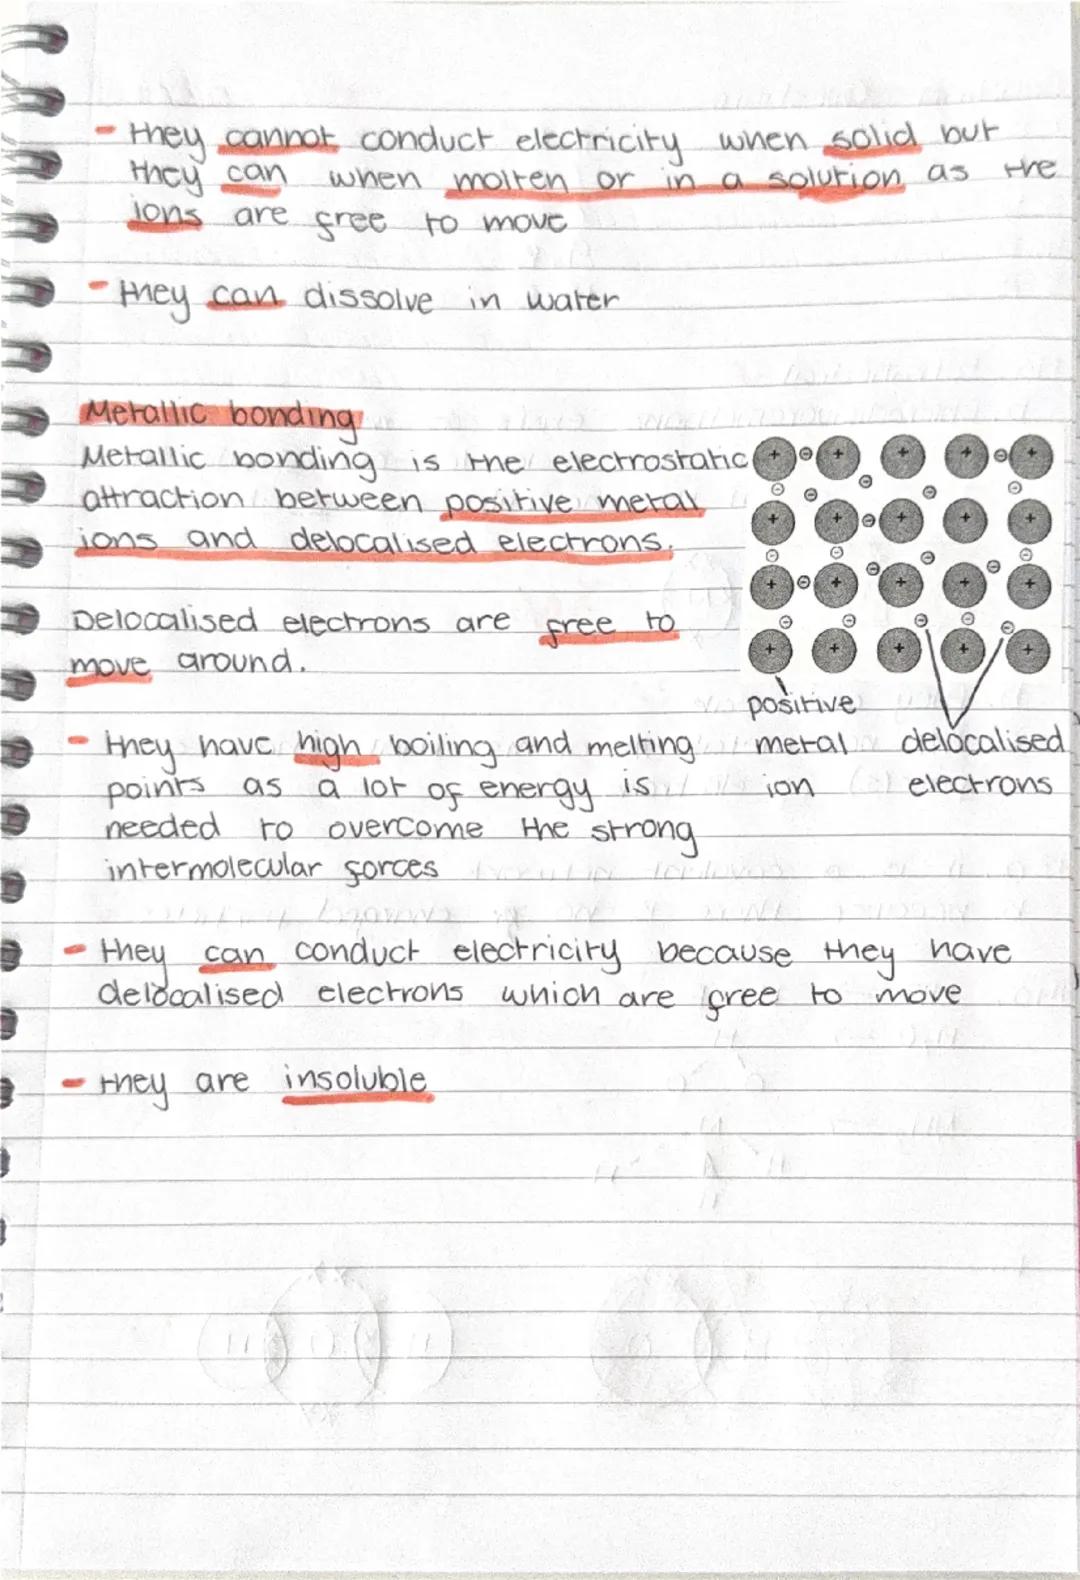 - they cannot conduct electricity when solid but
they can when molten or in a solution as the
ions are free to move
- they can dissolve in water
Metallic bonding
Metallic bonding is the electrostatic
attraction between positive metal
ions and delocalised electrons.
Delocalised electrons are free to
move around.
positive
metal
ion
delocalised
electrons
- they have high boiling and melting
points as a lot of energy is
needed to overcome the strong
intermolecular forces
- they can conduct electricity because they have
delocalised electrons which are free to move
- they are insoluble